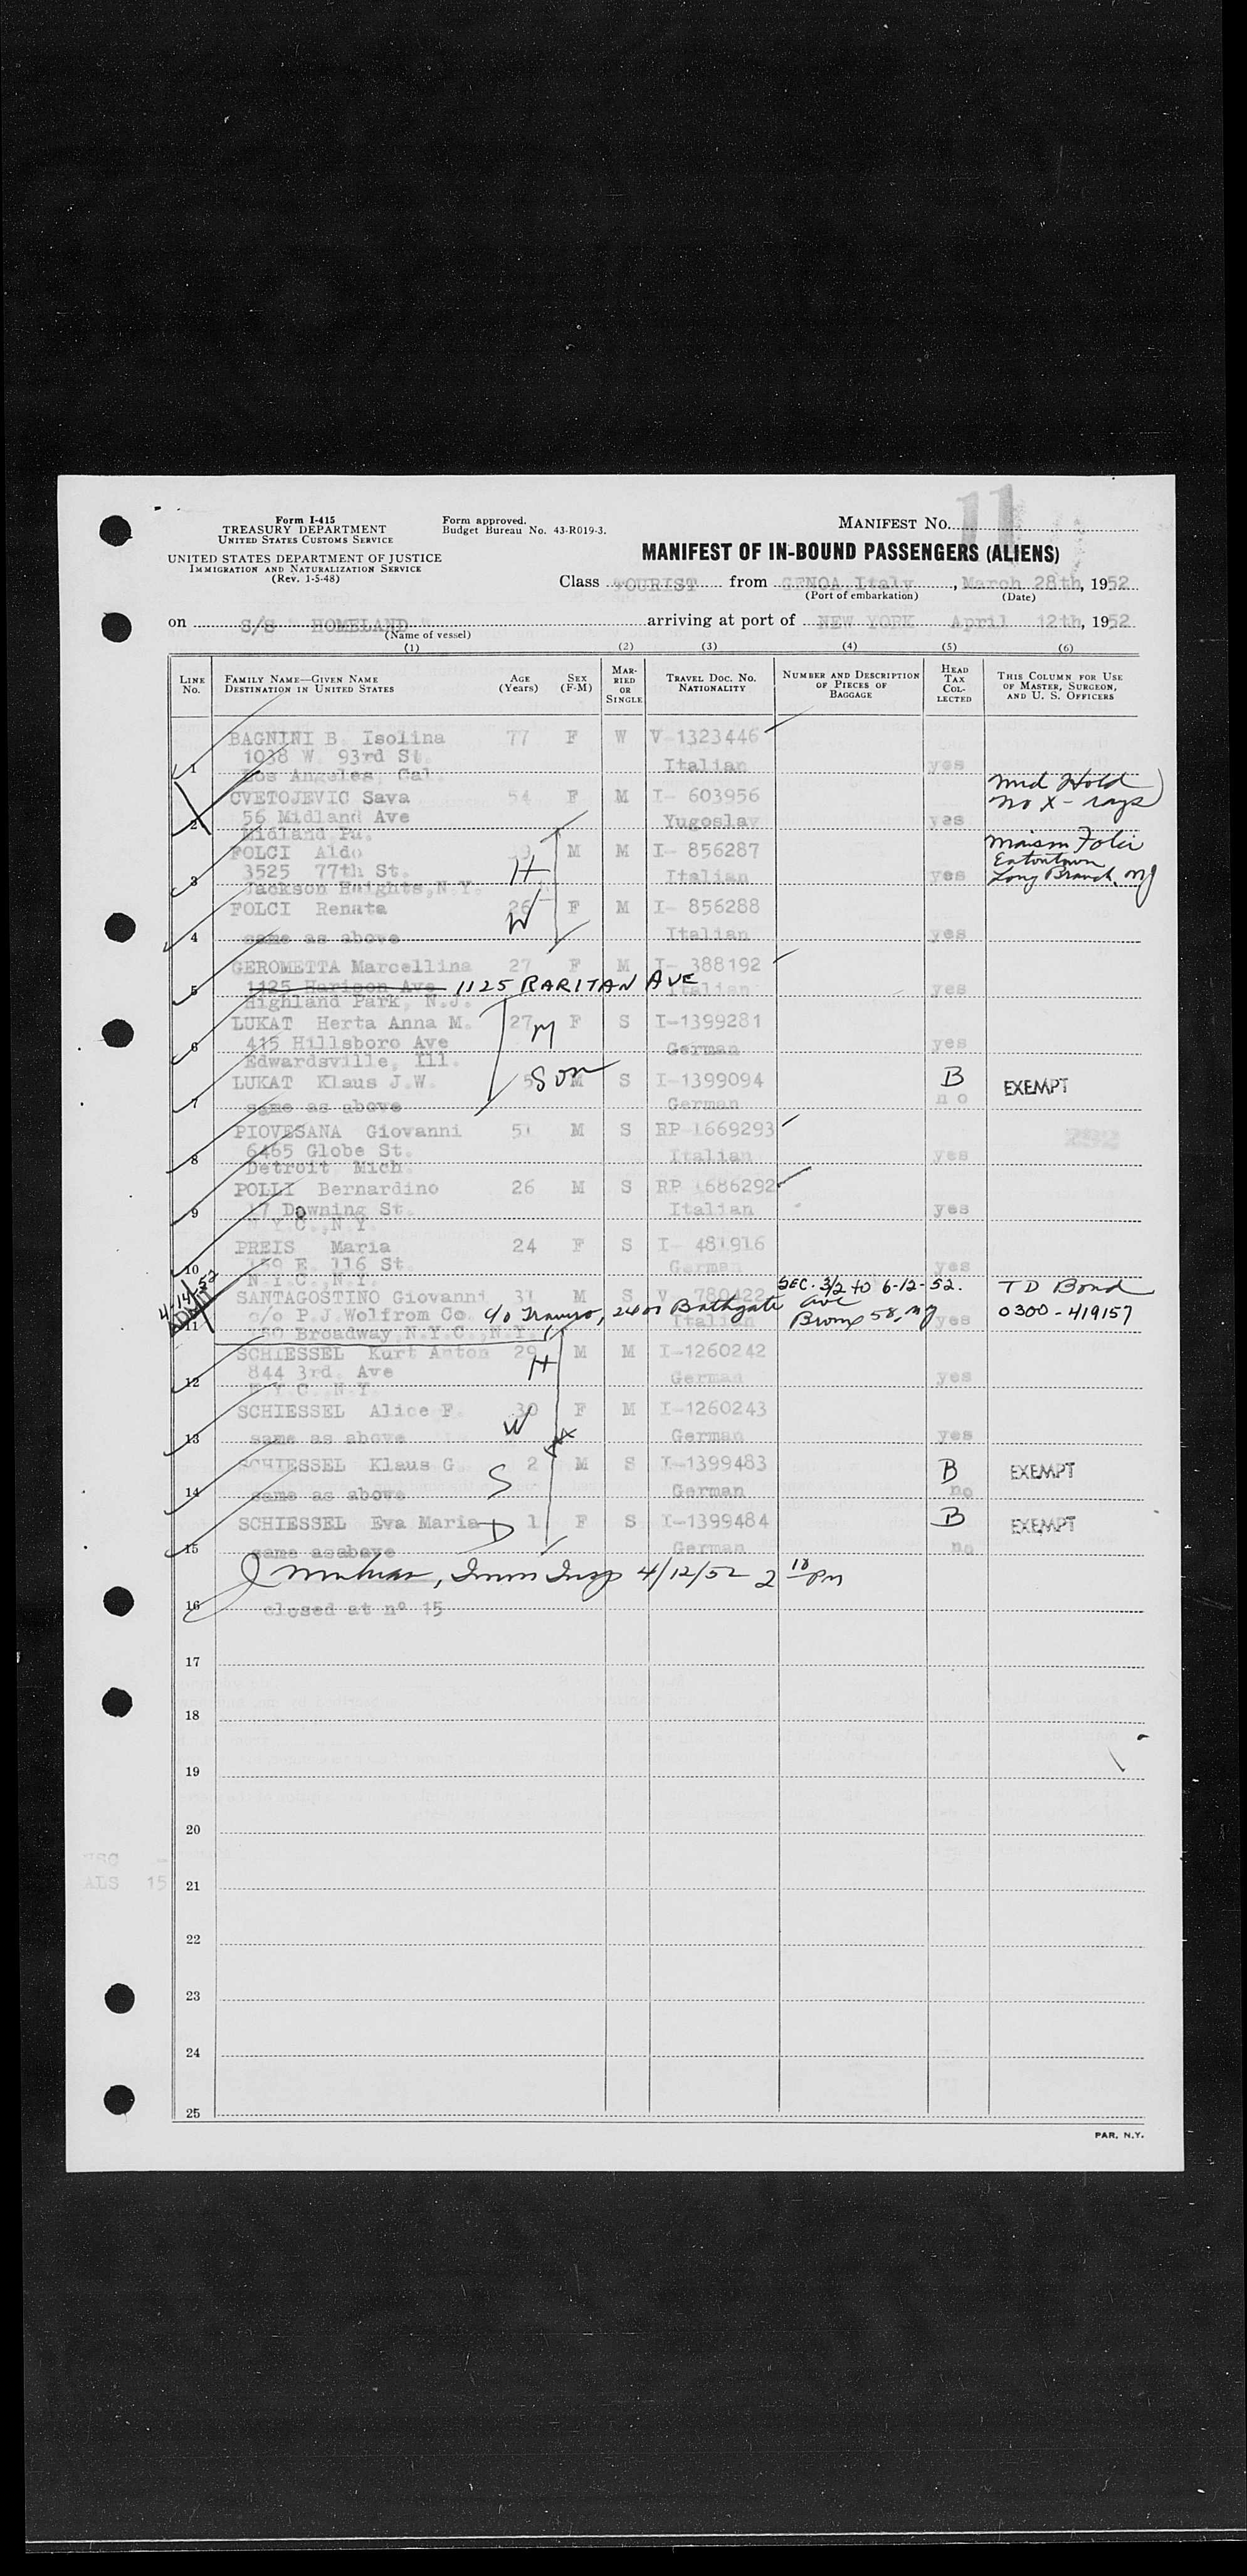 Form I-415
TREASURY DEPARTMENT
UNITED STATES CUSTOMS SERVICE
Form approved.
Budget Bureau No. 43-R019-3.
MANIFEST NO. 11
UNITED STATES DEPARTMENT OF JUSTICE
IMMIGRATION AND NATURALIZATION SERVICE
(Rev. 1-5-48)
MANIFEST OF IN-BOUND PASSENGERS (ALIENS)
Class TOURIST from GENOA Italy, March 28th, 1952
(Port of embarkation) (Date)
on S/S " HOMELAND " arriving at port of NEW YORK April 12th, 1952
(Name of vessel)
(1) (2) (3) (4) (5) (6)
LINE NO. FAMILY NAME—GIVEN NAME DESTINATION IN UNITED STATES AGE (Years) SEX (F-M) MARRIED OR SINGLE TRAVEL DOC. NO. NATIONALITY NUMBER AND DESCRIPTION OF PIECES OF BAGGAGE HEAD TAX COLLECTED THIS COLUMN FOR USE OF MASTER, SURGEON, AND U. S. OFFICERS
BAGNINI B. Isolina 77 F W V-1323446
1038 W. 93rd St. Italian yes
1 Los Angeles, Cal.
CVETOJEVIC Sava 54 F M I- 603956 Med Hold
No X-rays
56 Midland Ave Yugoslav yes
2 Midland Pa.
FOLCI Aldo M M I- 856287
3525 77th St. H Italian yes Eatontown
3 Jackson Heights, N.Y. Long Branch, NJ
FOLCI Renata 26 W F M I- 856288
4 same as above Italian yes
GEROMETTA Marcellina 27 F M I- 388192
5 1125 Harison Ave 1125 RARITAN AVE Italian yes
Highland Park, N.J.
LUKAT Herta Anna M. 27 M F S I-1399281
6 415 Hillsboro Ave German yes
Edwardsville, Ill.
LUKAT Klaus J.W. 5 Son M S I-1399094 B EXEMPT
7 same as above German no
PIOVESANA Giovanni 51 M S RP 1669293
8 6465 Globe St. Italian yes
Detroit Mich.
POLLI Bernardino 26 M S RP 1686292
9 17 Downing St. Italian yes
N.Y.C., N.Y.
PREIS Maria 24 F S I- 481916
10 159 E. 116 St. German yes
N.Y.C., N.Y.
4-14-52 SEC. 3/2 to 6-12-52. TD Bond
SANTAGOSTINO Giovanni 31 M S V 780422
ADMIT 11 c/o P.J.Wolfrom Co. c/o Traverso, 2400 Bathgate Ave Italian yes 0300-419157
Bronx 58, NY
80 Broadway, N.Y.C., N.Y.
SCHIESSEL Kurt Anton 29 H M M I-1260242
12 844 3rd. Ave German yes
N.Y.C. N.Y.
SCHIESSEL Alice F. 30 W F M I-1260243
13 same as above German yes
SCHIESSEL Klaus G. S 2 M S I-1399483 B EXEMPT
14 same as above German no
SCHIESSEL Eva Maria D 1 F S I-1399484 B EXEMPT
15 same asabove German no
Imm Insp 4/12/52 2 10 PM
16 closed at nº 15
17
18
19
20
21
ALS 15
22
23
24
25
PAR. N.Y.